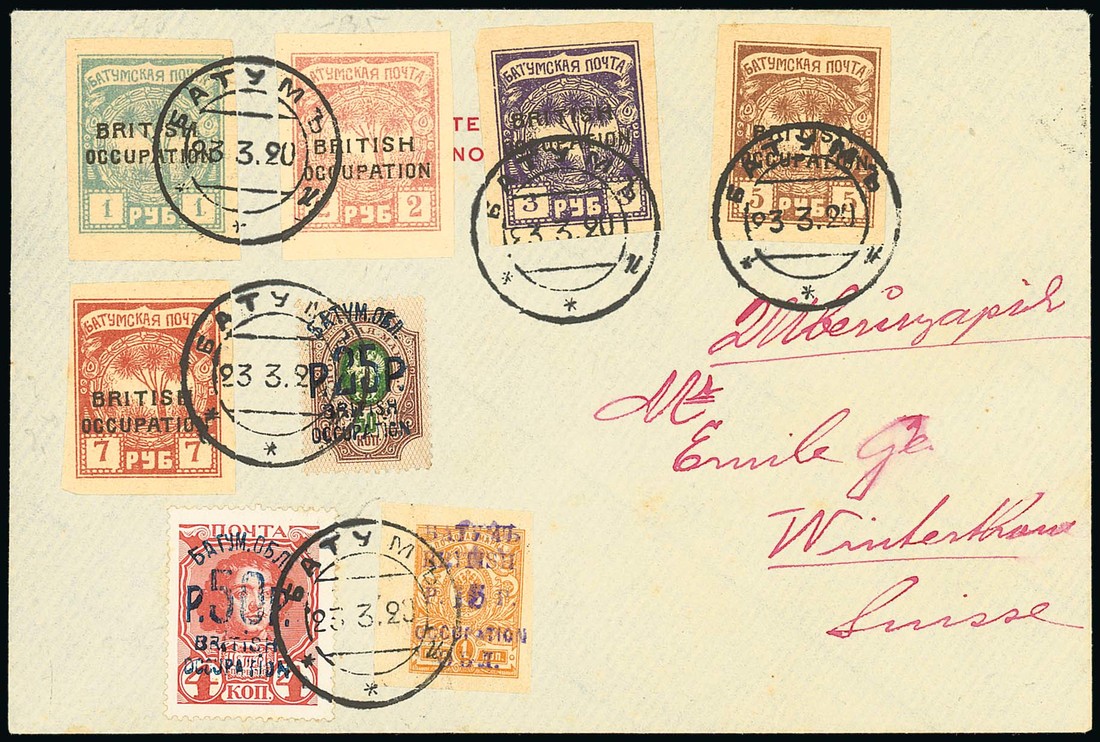 БАТУМСКАЯ ПОЧТА
BRITISH
OCCUPATION
1 РУБ 1
БАТУМЪ
23 3.20
л
BRITISH
OCCUPATION
2 РУБ 2
TE
NO
БАТУМСКАЯ ПОЧТА
BRITISH
OCCUPATION
3 РУБ 3
БАТУМЪ
23 3.20
л
БАТУМСКАЯ ПОЧТА
BRITISH
OCCUPATION
5 РУБ 5
БАТУМЪ
23 3.20
л
БАТУМСКАЯ ПОЧТА
BRITISH
OCCUPATION
7 РУБ 7
БАТУМ
23 3.2
БАТУМ.ОБЛ
Р.25Р.
BRITISH
OCCUPATION
50
КОП
Швейцарія
Mr
Emile Ge
Winterthour
Suisse
ПОЧТА
БАТУМ.ОБЛ
Р.50Р.
BRITISH
OCCUPATION
4 КОП. 4
БАТУМЪ
23 3.20
л
OCCUPATION
1 КОП.